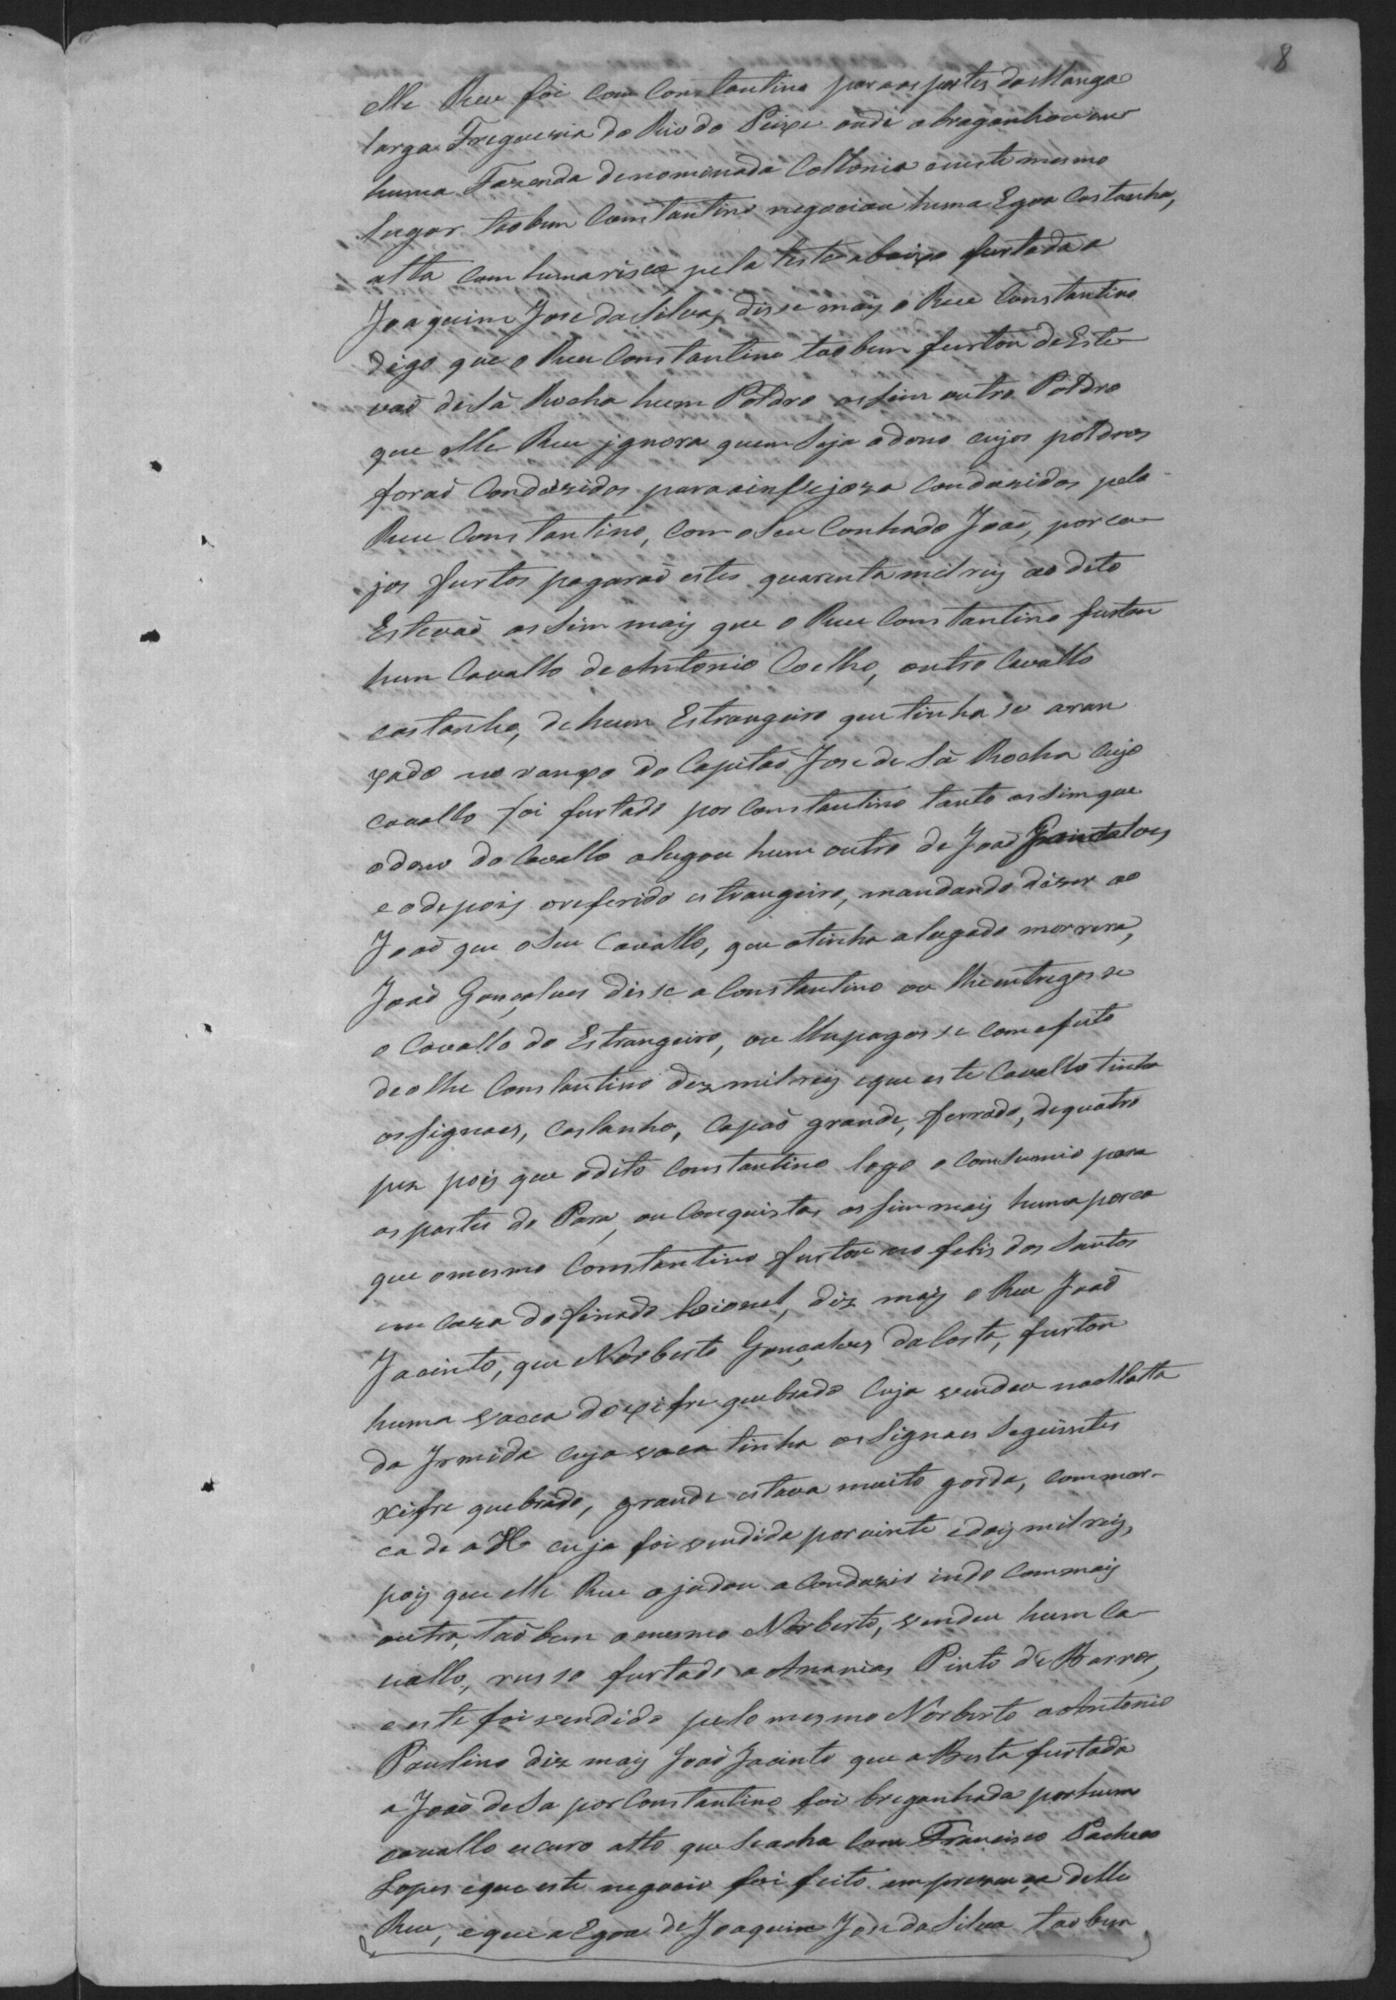 8
elle Reu foi com Constantino para as partes da Manga
larga Freguesia do Rio do Peixe onde abraganhou em
huma Fazenda denominada Collonia e neste mesmo
lugar taobem Constantino negociou huma Egoa Castanha,
alta com huma risca pela testa abaixo furtada a
Joaquim José da Silva, disse mais o Reu Constantino
digo que o Reu Constantino taobem furtou de Este-
vaõ de Sá Rocha hum Poldro assim outro Poldro
que elle Reu jgnora quem seja o dono cujos poldros
foraõ Condusidos para conduzidos pelo
Reu Constantino, com o Seu Cunhado Joaõ, por cu-
jos furtos pagaraõ estes quarenta mil reis ao dito
Estevaõ assim mais que o Reu Constantino furtou
hum Cavallo de Antonio Coelho, outro Cavallo
castanho, de hum Estrangeiro que tinha se aran
xado no ranxo do Capitaõ Jose de Sá Rocha cujo
cavallo foi furtado por Constantino tanto assim que
o dono do Cavallo alugou hum outro de Joaõ
e o depois o referido estrangeiro, mandando diser ao
Joaõ que o Seu Cavallo, que o tinha alugado morrera,
Joaõ Gonçalves disse a Constantino ou lhe entregasse
o Cavallo do Estrangeiro, ou lhe pagasse com efeito
deo lhe Constantino dez mil reis e que este Cavallo tinha
os signaes, Castanho, Capaõ grande, ferrado, de quatro
pez pois que o dito Constantino logo o consumio para
as partes do Pará, ou Conquistas assim mais huma porca
que o mesmo Constantino furtou ao felis dos Santos
em Caza do finado Leionel, diz mais o Reu Joaõ
Jacinto, que Norberto Gonçalves da Costa, furtou
huma vacca do xifre quebrado Cuja vendeu na Matta
da Jrmida cuja vaca tinha os Signaes Seguintes
xifre quebrado, grande estava muito gorda, com mar-
ca de a H cuja foi vendida por vinte e dois mil reis,
pois que elle Reu ajudou a Conduzir indo com mais
outro, taõbem o mesmo Norberto, vendeu hum Ca-
vallo, russo furtado a Ananias Pinto de Barros,
e este foi vendido pelo mesmo Norberto a Antonio
Paulino diz mais Joaõ Jacinto que a Besta furtada
a Joaõ de Sa por Constantino foi breganhada por hum
cavallo escuro alto que Se acha Com Francisco Pacheco
Lopes e que este negocio foi feito em presença delle
Reu, e que a Egoa de Joaquim Jose da Silva taobem